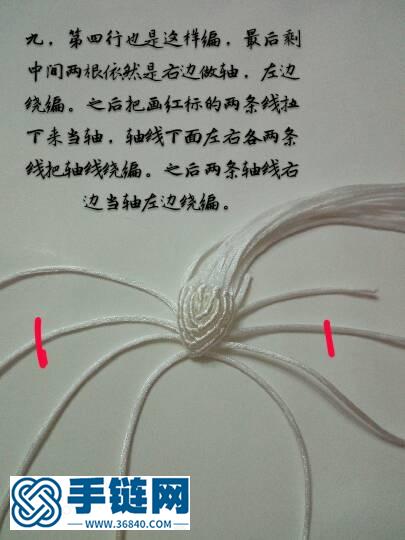 九，第四行也是这样编，最后剩
中间两根依然是右边做轴，左边
绕编。之后把画红标的两条线扭
下来当轴，轴线下面左右各两条
线把轴线绕编。之后两条轴线右
边当轴左边绕编。
手链网
WWW.36840.COM